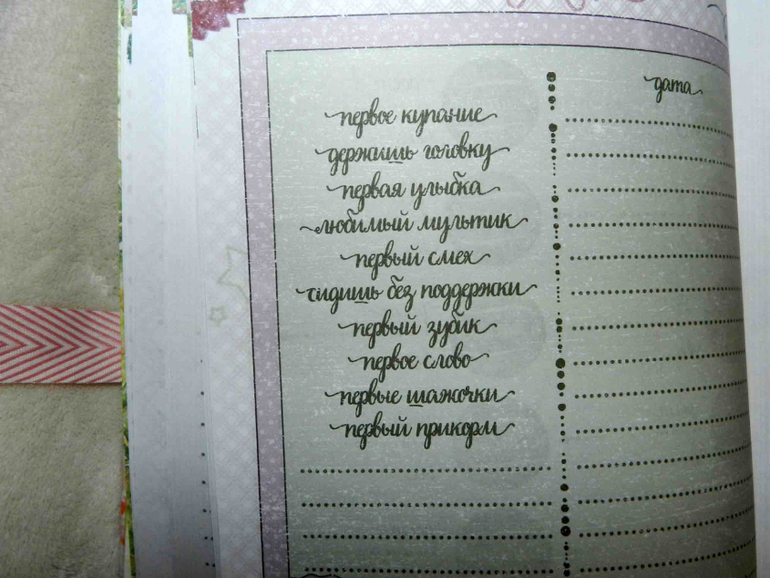 дата
первое купание
держишь головку
первая улыбка
любимый мультик
первый смех
сидишь без поддержки
первый зубик
первое слово
первые шажочки
первый прикорм